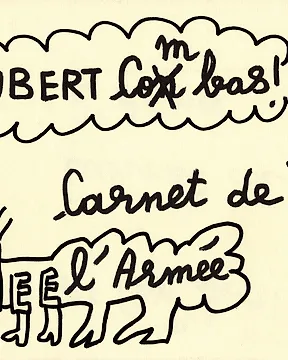 UBERT Com bas!
Carnet de
l'Armée